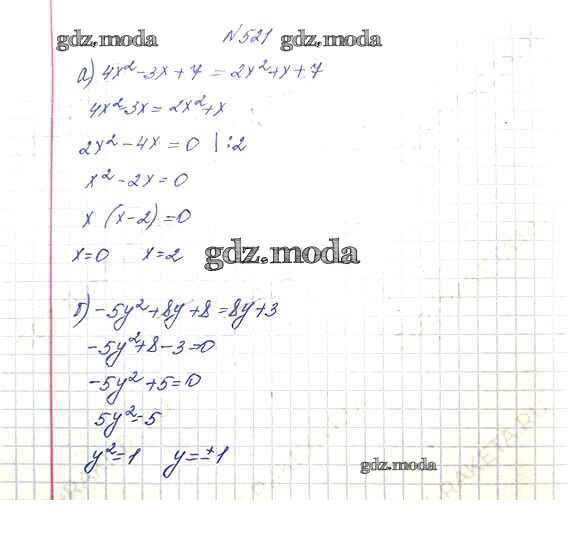 gdz.moda №521 gdz.moda
а) 4x² - 3x + 7 = 2x² + x + 7
4x² 3x = 2x² + x
2x² - 4x = 0 | :2
x² - 2x = 0
x (x - 2) = 0
x = 0 x = 2 gdz.moda
б) -5y² + 8y + 8 = 8y + 3
-5y² + 8 - 3 = 0
-5y² + 5 = 0
5y² = 5
y² = 1 y = ± 1
gdz.moda
RAKETA.RU